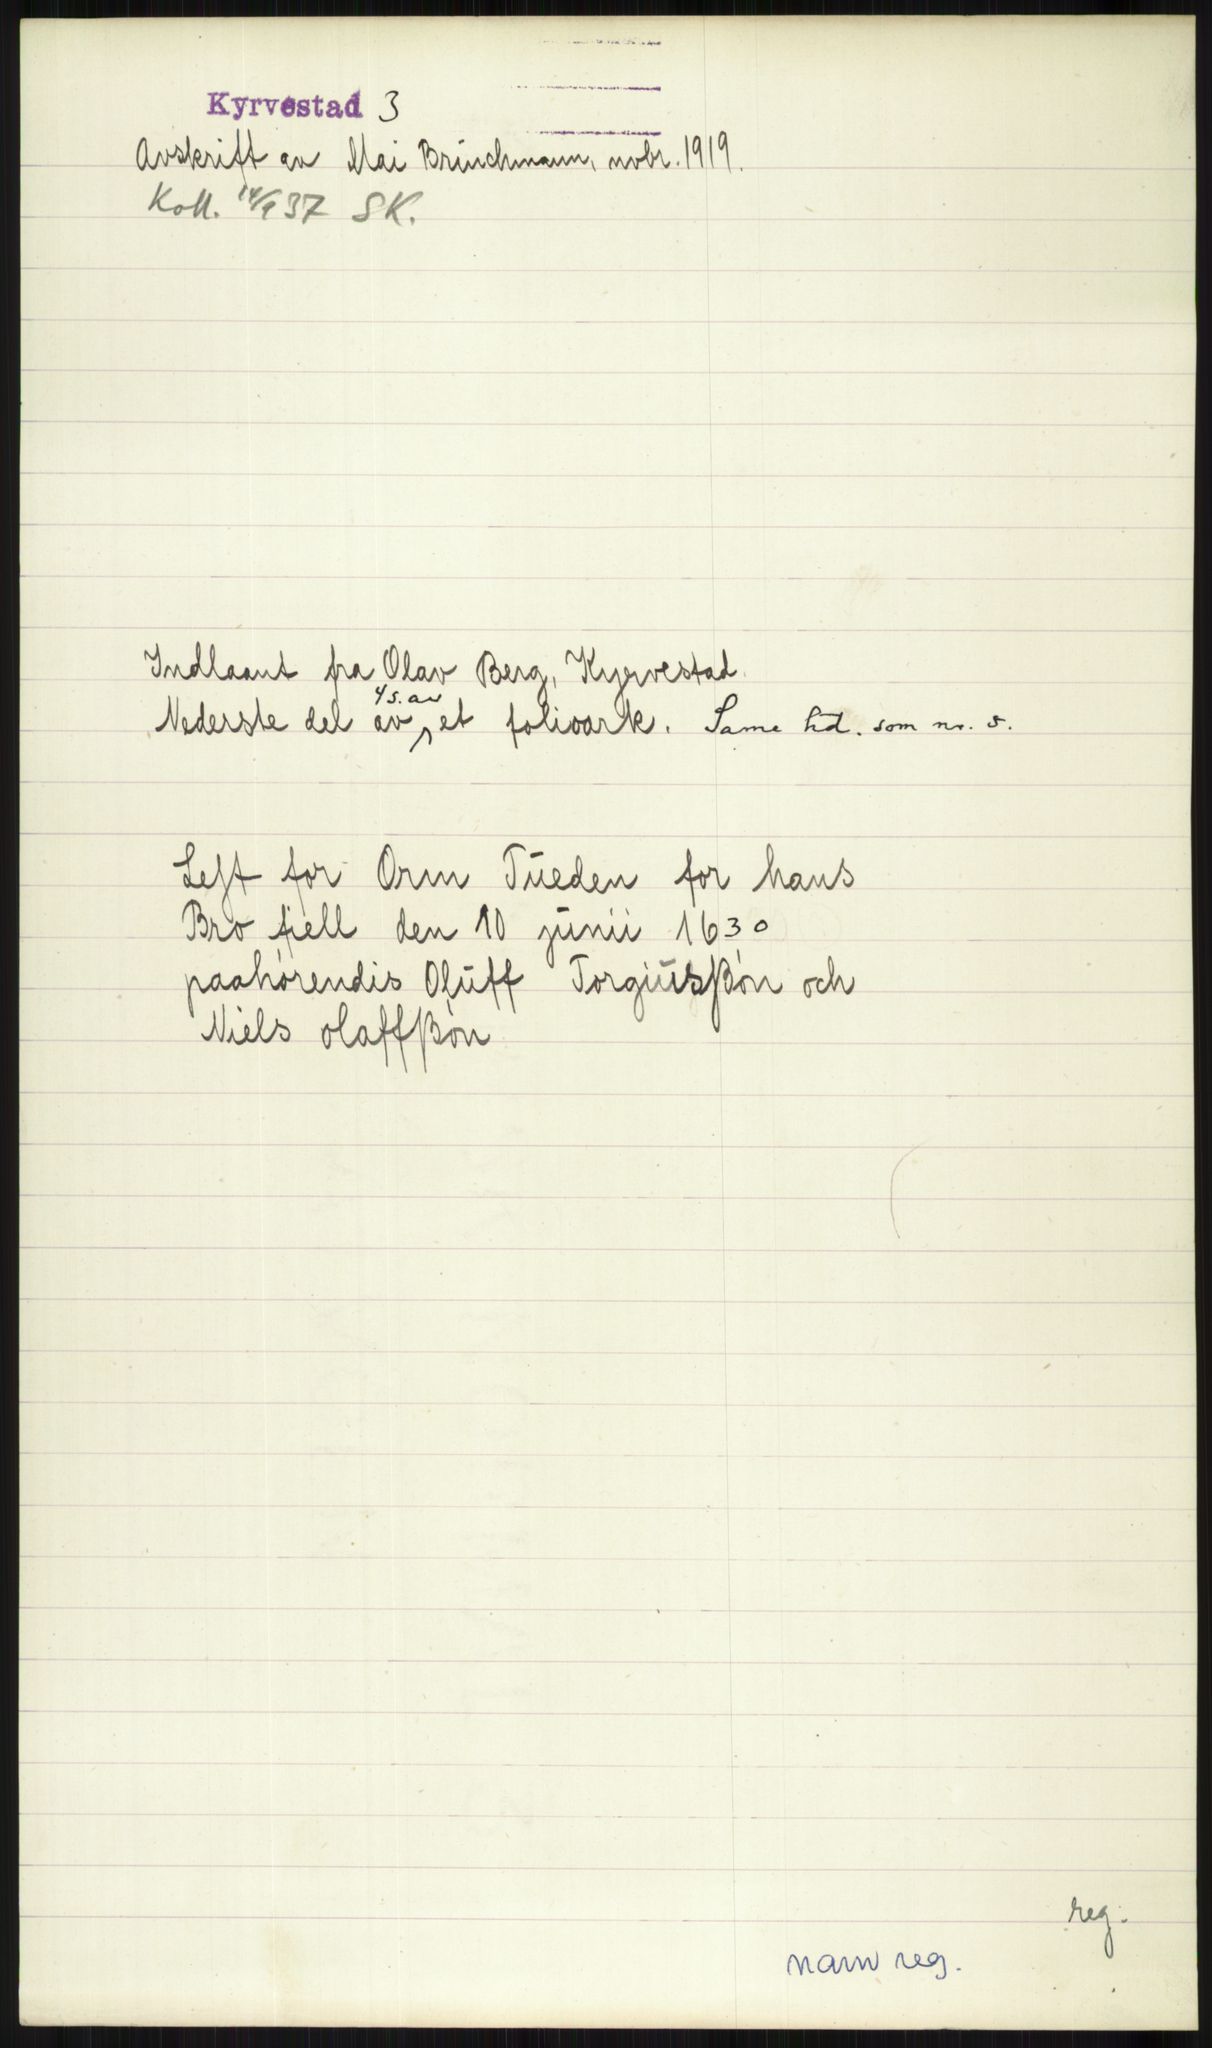 Kyrvestad 3
Avskrift av Mai Brünchmann, novbr. 1919.
Koll. 14/9 37 SK.
Indlaant fra Olav Berg, Kyrvestad.
4 s. av
Nederste del av et folioark. Same hd. som nr. 5.
Left for Orm Tüeden for hans
Bro fiell den 10 jünii 1630
paahörendis Olüff Torgiüsßön och
Niels olaffßön
reg.
navn reg.